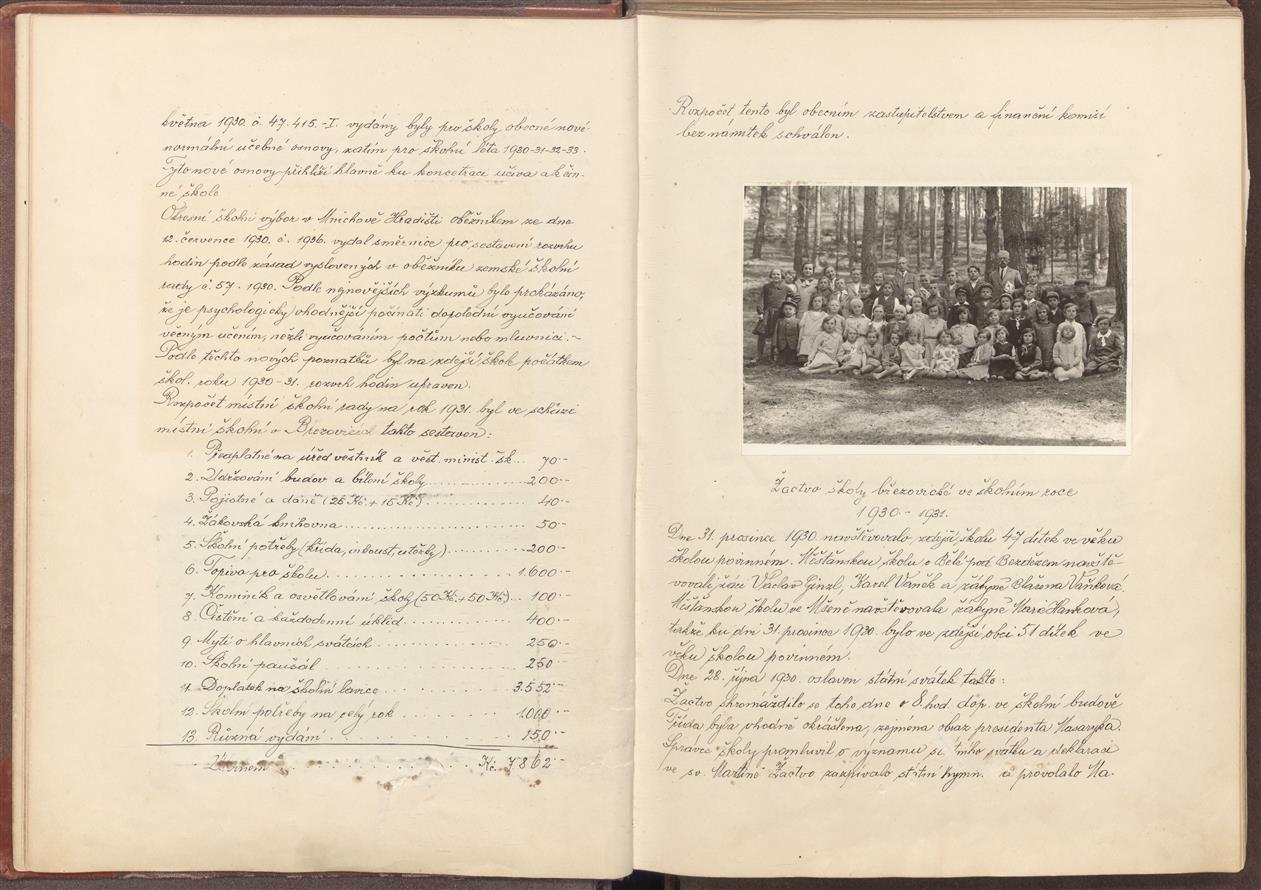 května 1930. č. 47.415.-I. vydány byly pro školy obecné nové
normální učebné osnovy, zatím pro školní léta 1930-31-32-33.
Tyto nové osnovy přihlíží hlavně ku koncetraci učiva a k čin-
né škole
Okresní školní výbor v Mnichově Hradišti oběžníkem ze dne
12. července 1930. č. 1936. vydal směrnice pro sestavení rozvrhu
hodin podle zásad vyslovených v oběžníku zemské školní
rady č. 57. 1930. Podle nejnovějších výzkumů bylo prokázáno,
že je psychologicky vhodnější počínati dopolední vyučování
věcným učením, nežli vyučováním počtům nebo mluvnici. -
Podle těchto nových poznatků byl na zdejší škole počátkem
škol. roku 1930-31. rozvrh hodin upraven.
Rozpočet místní školní rady na rok 1931. byl ve schůzi
místní školní v Březovicích takto sestaven:
1. Předplatné na úřed věstník a věst. minist. šk... 70·-
2. Udržování budov a bílení školy............ 200·-
3. Pojistné a daně (25 Kč. + 15 Kč)............ 40·-
4. Žákovská knihovna............ 50·-
5. Školní potřeby (křída, inkoust, utěrky)............ 200·-
6. Topivo pro školu............ 1.600·-
7. Kominík a osvětlování školy (50 Kč. + 50 Kč).. 100·-
8. Čištění a každodenní úklid............ 400·-
9. Mytí o hlavních svátcích............ 250·-
10. Školní paušál............ 250·-
11. Doplatek na školní lavice............ 3.552·-
12. Školní potřeby na celý rok............ 1.000·-
13. Různá vydání............ 150·-
Kč. 7862·-
Rozpočet tento byl obecním zastupitelstvem a finanční komisí
bez námitek schválen.
Žactvo školy březovické ve školním roce
1930. - 1931.
Dne 31. prosince 1930. navštěvovalo zdejší školu 47 dítek ve věku
školou povinném. Měšťanskou školu v Bělé pod Bezdězem navště-
vovali žáci Václav Ginzl, Karel Vaněk a žákyně Blažena Vaňková.
Měšťanskou školu ve Mšeně navštěvovala žákyně Marie Hanková,
takže ku dni 31. prosince 1930. bylo ve zdejší obci 51 dítek ve
věku školou povinném.
Dne 28. října 1930. oslaven státní svátek takto:
Žactvo shromáždilo se toho dne v 8. hod. dop. ve školní budově
Třída byla vhodně okrášlena, zejména obraz presidenta Masaryka.
Správce školy promluvil o významu st. tního svátku a deklaraci
ve sv. Martině Žactvo zazpívalo státní hymn. a provolalo Ma-